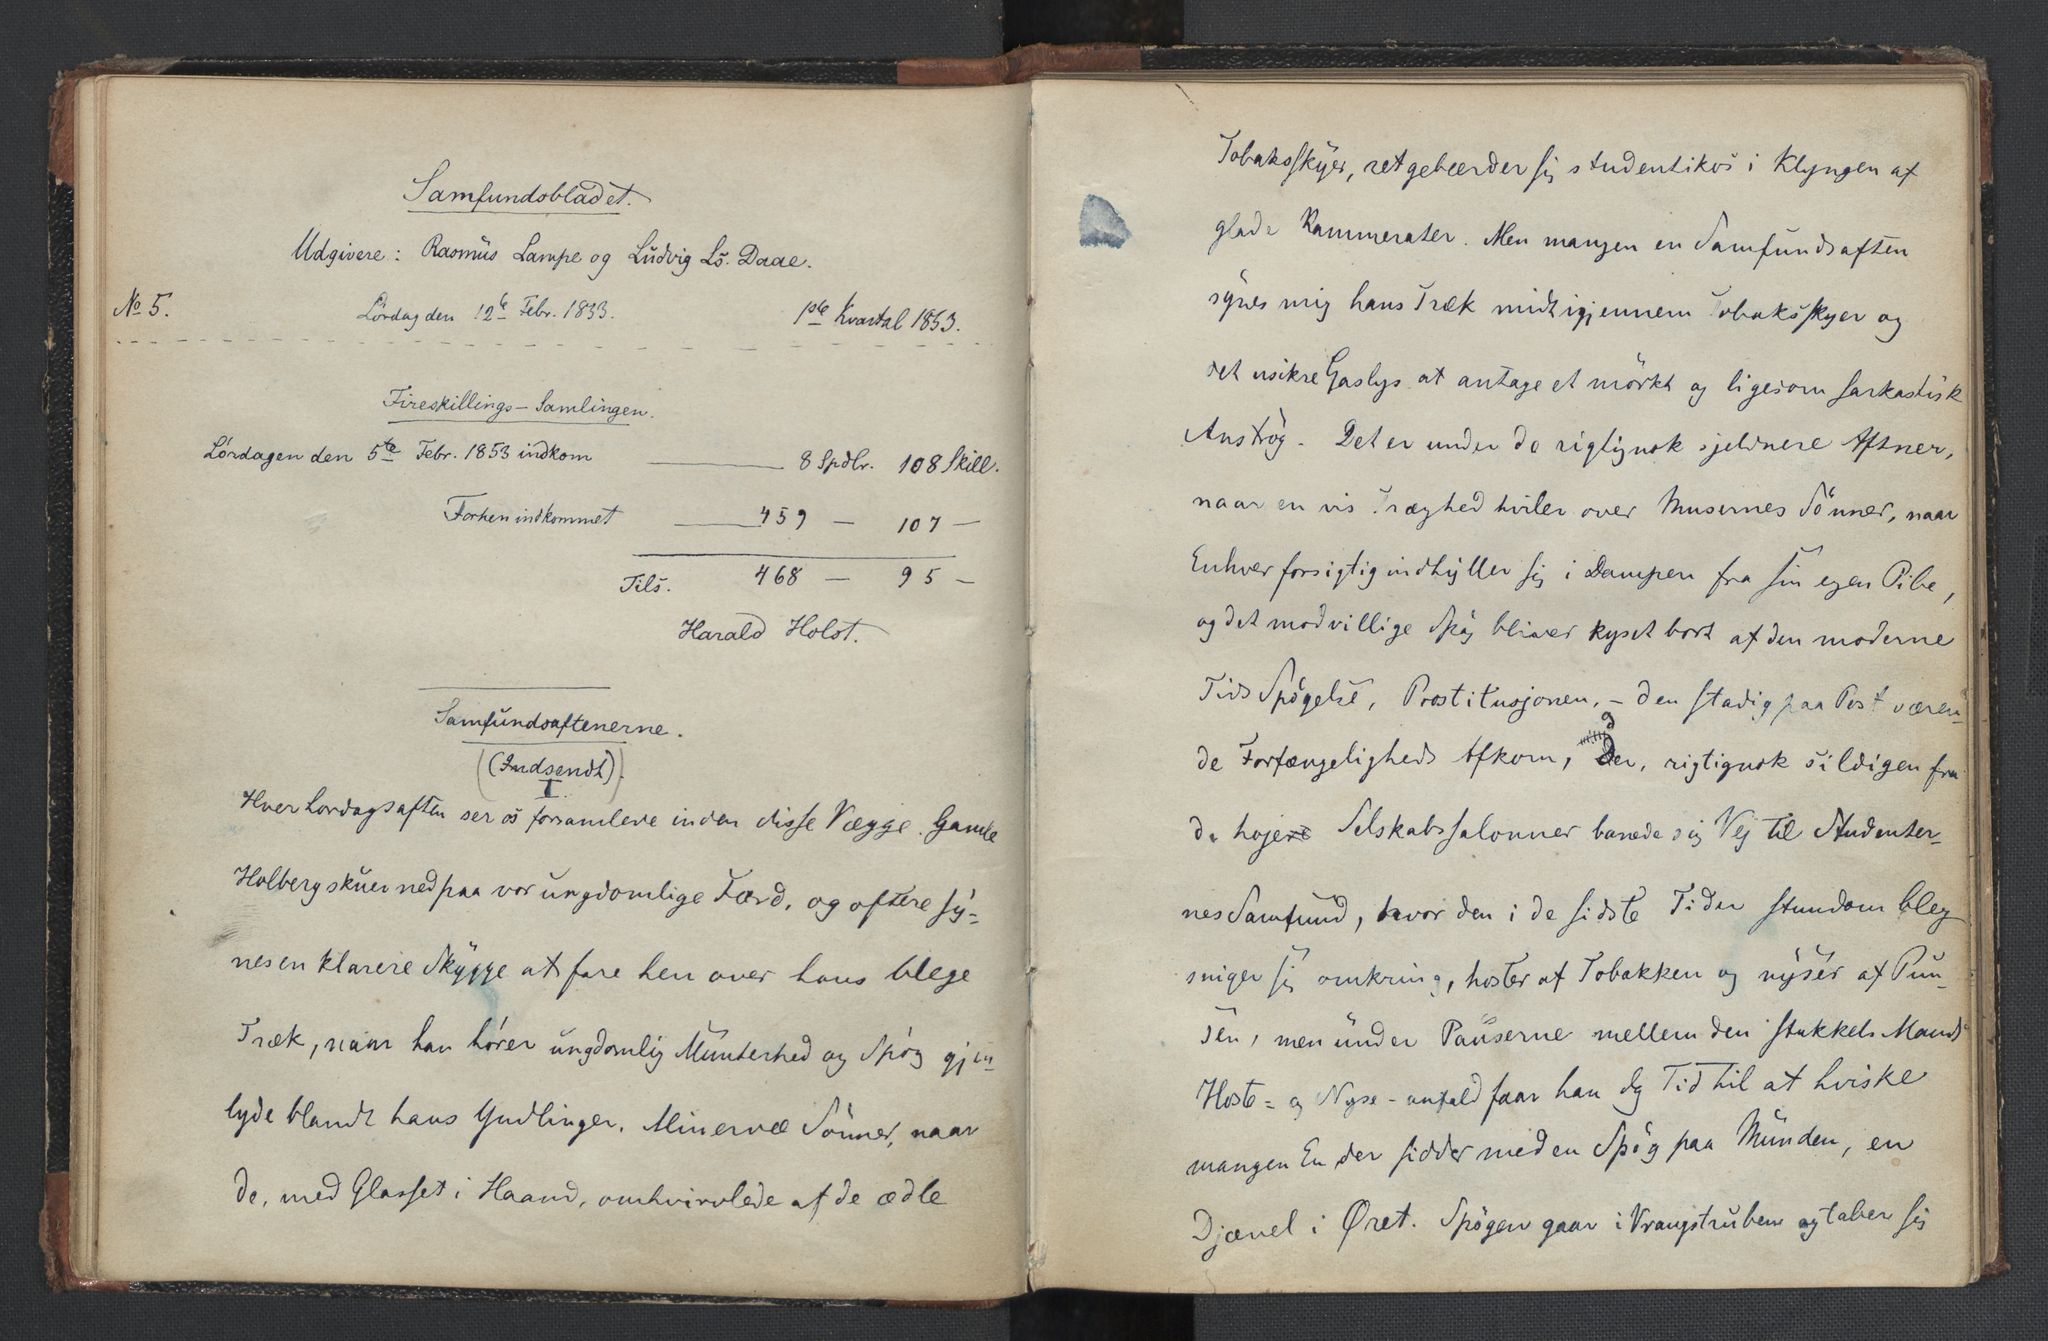 Samfundsbladet.
Udgivere: Rasmus Lampe og Ludvig Ls. Daae.
No 5. Lördag den 12te Febr. 1853. 1ste Kvartal 1853.
Fireskillings-Samlingen.
Lördagen den 5te Febr. 1853 indkom 8 Spdlr. 108 Skill.
Forhen indkommet 459 — 107 —
Tils. 468 — 95 —
Harald Holst.
Samfundsaftenerne.
(Indsendt).
I
Hver Lördagsaften ser os forsamlede inden disse Vægge. Gamle
Holberg skuer ned paa vor ungdomlige Færd, og oftere sy=
nes en klarere Skygge at fare hen over hans blege
Træk, naar han hörer ungdomlig Munterhed og Spög gjen
lyde blandt hans Yndlinger, Minervæ Sönner, naar
de, med Glasset i Haand, omhvirvlede af de ædle
Tobaksskyer, ret gebærder sig studentikos i Klyngen af
glade Kammerater. Men mangen en Samfundsaften
synes mig hans Træk midt igjennem Tobaksskyer og
det usikre Gaslys at antage et mörkt og ligesom sarkastisk
Anströg. Det er under de rigtignok sjeldnere Aftner,
naar en vis Træghed hviler over Musernes Sönner, naar
Enhver forsigtig indhyller sig i Dampen fra sin egen Pibe,
og det modvillige Spög bliver kyset bort af den moderne
Tids Spögelse, Prostitusjonen, - den stadig paa Post væren-
de Forfængeligheds Afkom, der, rigtignok sildigen fra
de hojere Selskabssalonner banede sig Vej til Studenter-
nes Samfund, hvor den i de sidste Tider stundom bleg
sniger sig omkring, hoster af Tobakken og nyser af Pun-
sen, men under Pauserne mellem den stakkels Mands
Hoste= og Nyse-anfald faar han dog Tid til at hviske
mangen En der sidder med en Spög paa Munden, en
Djævel i Øret. Spögen gaar i Vrangstruben og taber sig